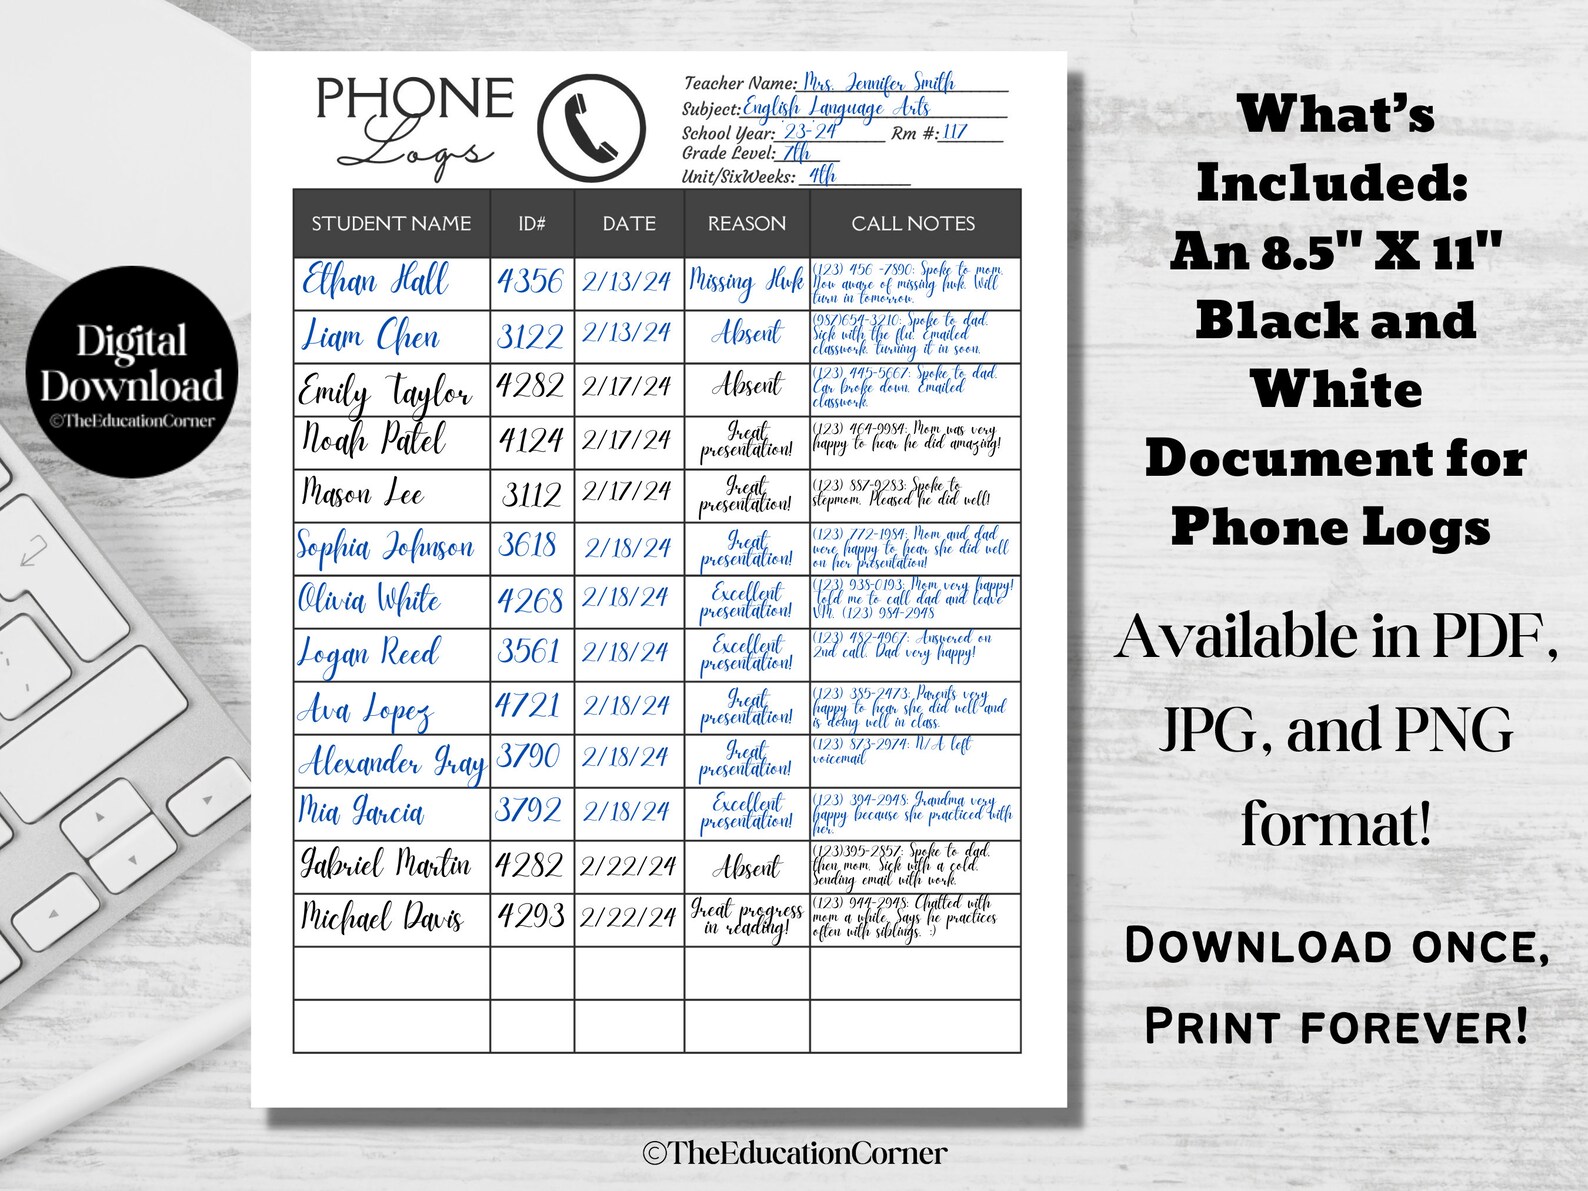 PHONE
Logs
Teacher Name: Mrs. Jennifer Smith
Subject: English Language Arts
School Year: 23-24 Rm #: 117
Grade Level: 7th
Unit/SixWeeks: 4th
STUDENT NAME ID# DATE REASON CALL NOTES
Ethan Hall 4356 2/13/24 Missing Hwk (123) 456 -7890: Spoke to mom.
Now aware of missing hwk. Will
turn in tomorrow.
Liam Chen 3122 2/13/24 Absent (987)654-3210: Spoke to dad.
Sick with the flu. Emailed
classwork. turning it in soon.
Emily Taylor 4282 2/17/24 Absent (123) 445-5667: Spoke to dad.
Car broke down. Emailed
classwork.
Noah Patel 4124 2/17/24 Great
presentation! (123) 464-9984: Mom was very
happy to hear he did amazing!
Mason Lee 3112 2/17/24 Great
presentation! (123) 887-9283: Spoke to
stepmom. Pleased he did well!
Sophia Johnson 3618 2/18/24 Great
presentation! (123) 772-1984: Mom and dad
were happy to hear she did well
on her presentation!
Olivia White 4268 2/18/24 Excellent
presentation! (123) 938-0193: Mom very happy!
Told me to call dad and leave
VM. (123) 984-2948
Logan Reed 3561 2/18/24 Excellent
presentation! (123) 482-4967: Answered on
2nd call. Dad very happy!
Ava Lopez 4721 2/18/24 Great
presentation! (123) 385-2473: Parents very
happy to hear she did well and
is doing well in class.
Alexander Gray 3790 2/18/24 Great
presentation! (123) 873-2974: N/A left
voicemail
Mia Garcia 3792 2/18/24 Excellent
presentation! (123) 394-2948: Grandma very
happy because she practiced with
her.
Gabriel Martin 4282 2/22/24 Absent (123)395-2857: Spoke to dad,
then mom. Sick with a cold.
Sending email with work.
Michael Davis 4293 2/22/24 Great progress
in reading! (123) 944-2948: Chatted with
mom a while. Says he practices
often with siblings. :)
Digital
Download
©TheEducationCorner
What's
Included:
An 8.5" X 11"
Black and
White
Document for
Phone Logs
Available in PDF,
JPG, and PNG
format!
Download once,
Print forever!
©TheEducationCorner